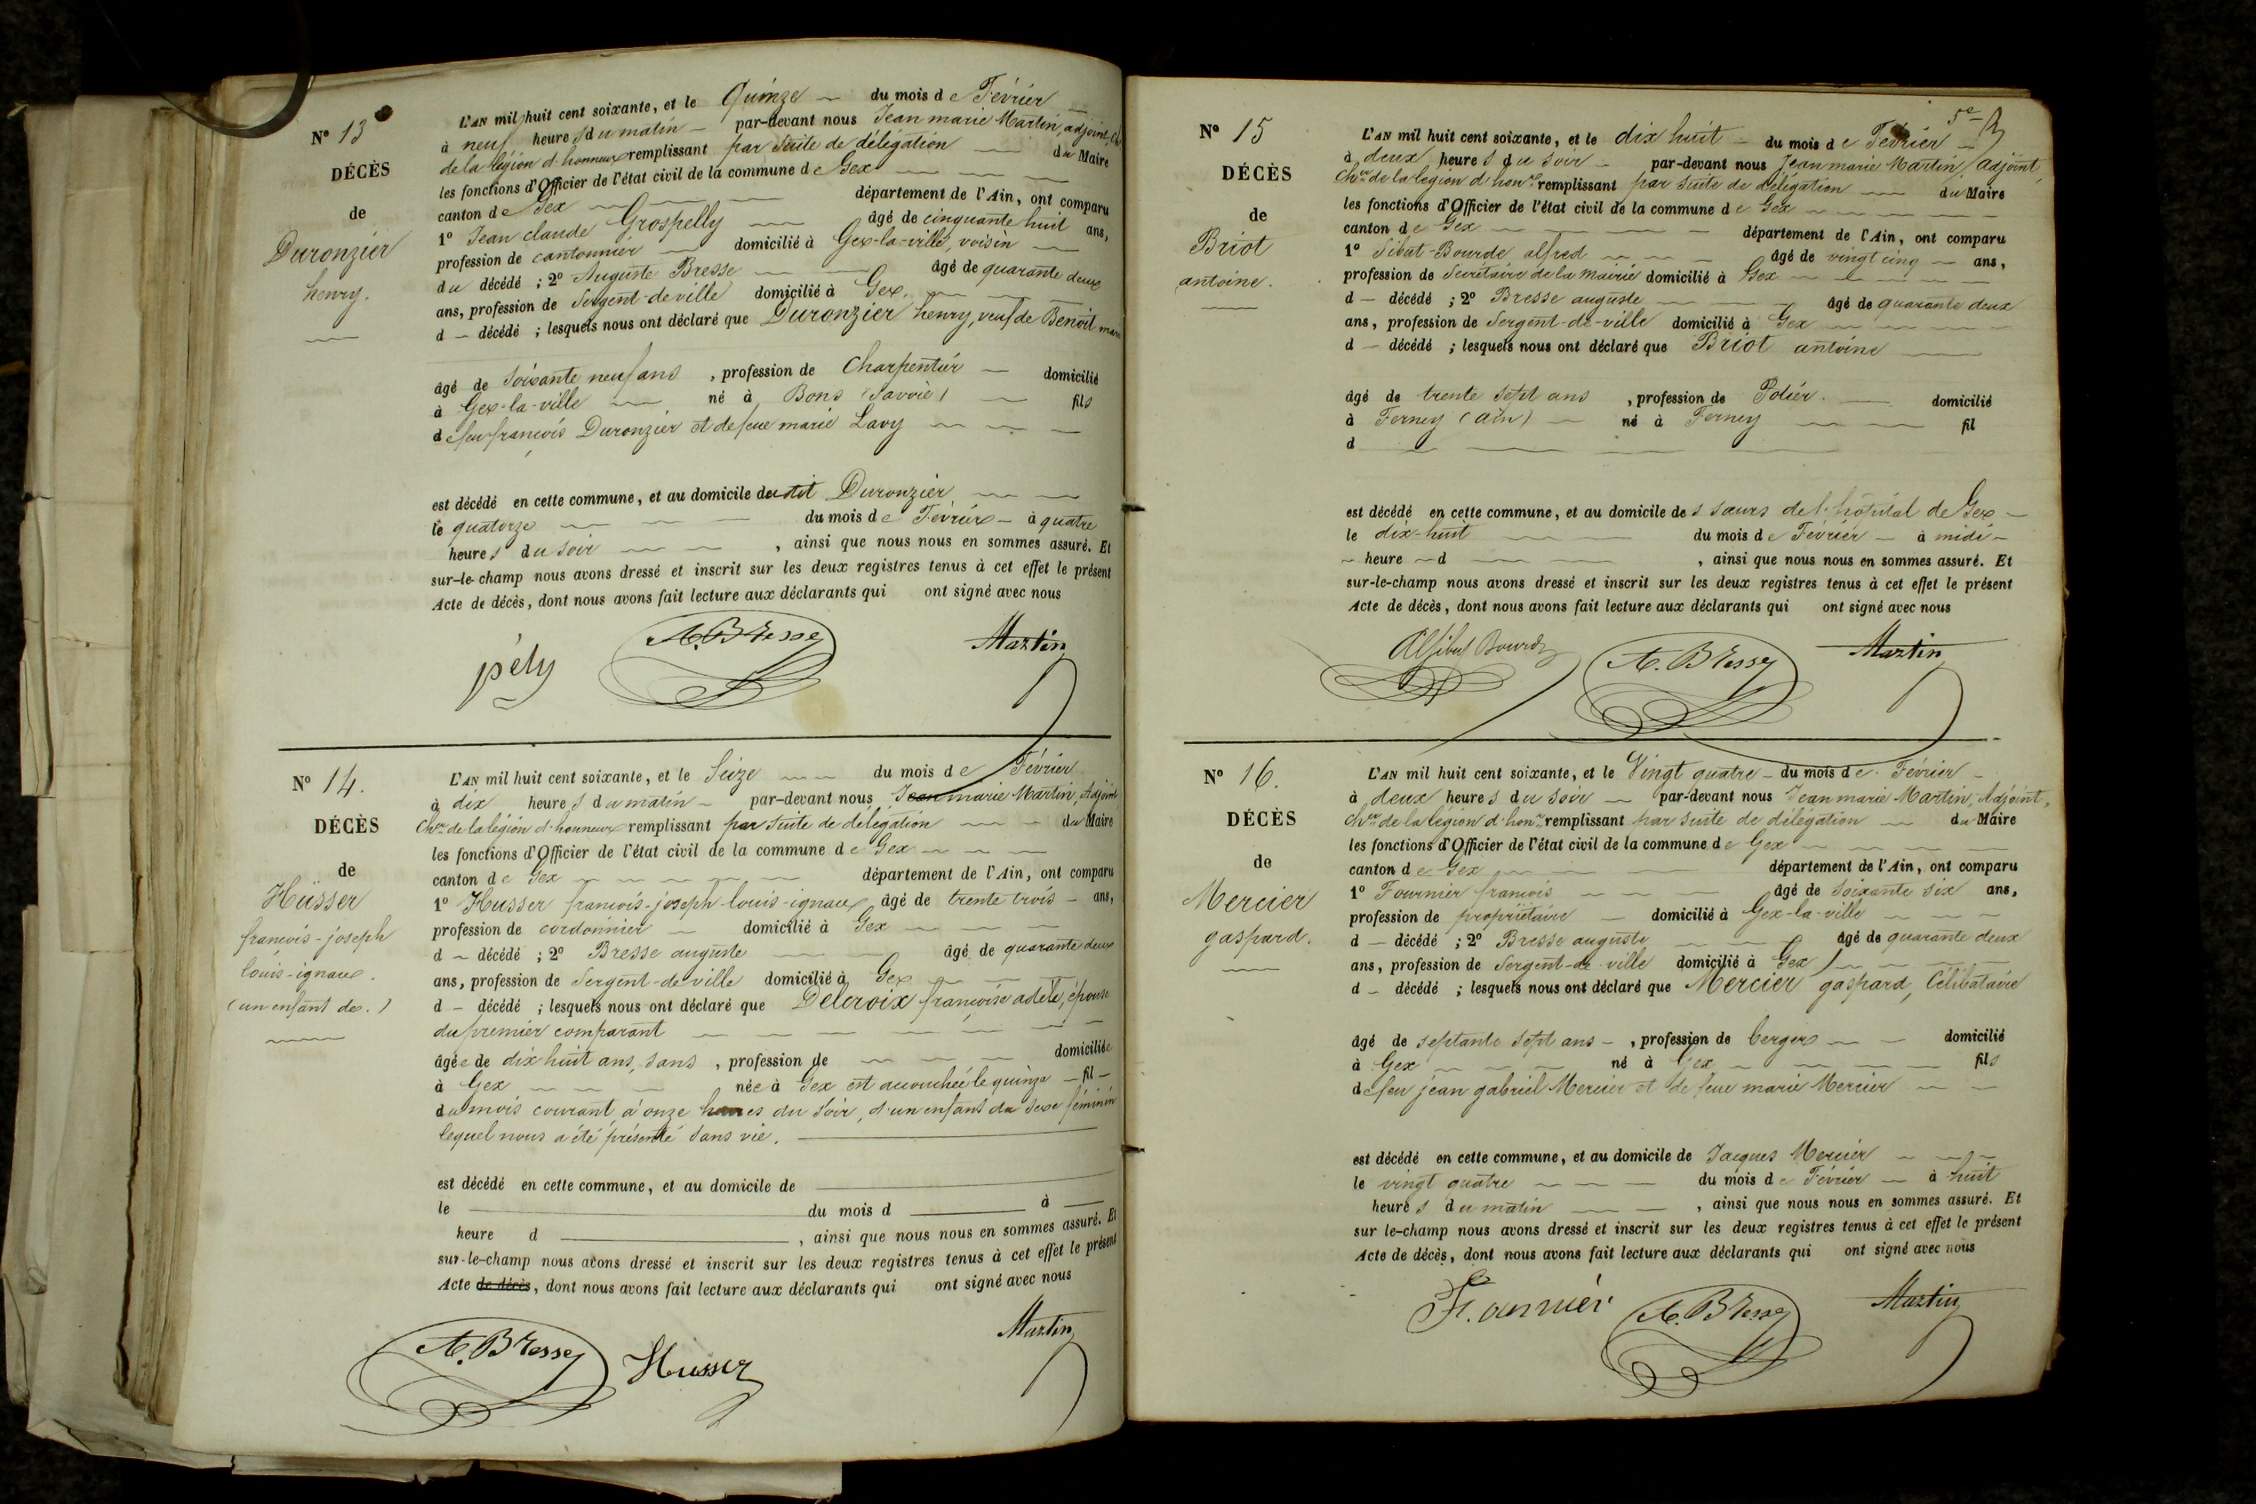 N° 13
DÉCÈS
de
Duronzier
henry.
L'AN mil huit cent soixante, et le Quinze du mois de Février
à neuf heures du matin par-devant nous Jean marie Martin, adjoint, Ch
de la légion d'honneur remplissant par suite de délégation du Maire
les fonctions d'Officier de l'état civil de la commune de Gex
canton de Gex département de l'Ain, ont comparu
1° Jean claude Grospelly âgé de cinquante huit ans,
profession de cantonnier domicilié à Gex-la-ville, voisin
du décédé ; 2° Auguste Bresse âgé de quarante deux
ans, profession de Sergent-de ville domicilié à Gex.
d décédé ; lesquels nous ont déclaré que Duronzier henry, veuf de Benoit marie
âgé de soixante neuf ans , profession de Charpentier domicilié
à Gex-la-ville né à Bons (Savoie) fils
de feu françois Duronzier et de feue marie Lavy
est décédé en cette commune, et au domicile du dit Duronzier
le quatorze du mois de Février à quatre
heures du soir , ainsi que nous nous en sommes assuré. Et
sur-le-champ nous avons dressé et inscrit sur les deux registres tenus à cet effet le présent
Acte de décès, dont nous avons fait lecture aux déclarants qui ont signé avec nous
pély A. Bresse Martin
N° 14.
DÉCÈS
de
Hüsser
françois-joseph
louis-ignace.
(un enfant de.)
L'AN mil huit cent soixante, et le Seize du mois de Février
à dix heures du matin par-devant nous Jean marie Martin, Adjoint
Chev. de la légion d'honneur remplissant par suite de délégation du Maire
les fonctions d'Officier de l'état civil de la commune de Gex
canton de Gex département de l'Ain, ont comparu
1° Husser françois-joseph louis-ignace âgé de trente trois ans,
profession de cordonnier domicilié à Gex
d décédé ; 2° Bresse auguste âgé de quarante deux
ans, profession de Sergent-de ville domicilié à Gex
d décédé ; lesquels nous ont déclaré que Delcroix françoise adèle, épouse
du premier comparant
âgée de dix huit ans, sans , profession de domiciliée
à Gex née à Gex est accouchée le quinze fil
du mois courant à onze heures du soir, d'un enfant du sexe féminin
lequel nous a été présenté sans vie.
est décédé en cette commune, et au domicile de
le du mois d à
heure d , ainsi que nous nous en sommes assuré. Et
sur-le-champ nous avons dressé et inscrit sur les deux registres tenus à cet effet le présent
Acte de décès, dont nous avons fait lecture aux déclarants qui ont signé avec nous
A. Bresse Husser Martin
5e
N° 15
DÉCÈS
de
Briot
antoine.
L'AN mil huit cent soixante, et le dix huit du mois de Février
à deux heures du soir par-devant nous Jean marie Martin, adjoint,
Chev. de la légion d'honr. remplissant par suite de délégation du Maire
les fonctions d'Officier de l'état civil de la commune de Gex
canton de Gex département de l'Ain, ont comparu
1° Sibut-Bourde alfred âgé de vingt cinq ans,
profession de Secrétaire de la Mairie domicilié à Gex
d décédé ; 2° Bresse auguste âgé de quarante deux
ans, profession de Sergent-de-ville domicilié à Gex
d décédé ; lesquels nous ont déclaré que Briot antoine
âgé de trente sept ans , profession de Potier. domicilié
à Ferney (ain) né à Ferney fil
d
est décédé en cette commune, et au domicile des sœurs de l'hôpital de Gex
le dix-huit du mois de Février à midi
heure d , ainsi que nous nous en sommes assuré. Et
sur-le-champ nous avons dressé et inscrit sur les deux registres tenus à cet effet le présent
Acte de décès, dont nous avons fait lecture aux déclarants qui ont signé avec nous
Al Sibut Bourde A. Bresse Martin
N° 16.
DÉCÈS
de
Mercier
gaspard.
L'AN mil huit cent soixante, et le Vingt quatre du mois de Février
à deux heures du soir par-devant nous Jean marie Martin, Adjoint,
Chev. de la légion d'honr. remplissant par suite de délégation du Maire
les fonctions d'Officier de l'état civil de la commune de Gex
canton de Gex département de l'Ain, ont comparu
1° Fournier françois âgé de soixante six ans,
profession de propriétaire domicilié à Gex-la-ville
d décédé ; 2° Bresse auguste âgé de quarante deux
ans, profession de Sergent-de ville domicilié à Gex
d décédé ; lesquels nous ont déclaré que Mercier gaspard, Célibataire
âgé de septante sept ans , profession de berger domicilié
à Gex né à Gex fils
de feu jean gabriel Mercier et de feue marie Mercier
est décédé en cette commune, et au domicile de Jacques Mercier
le vingt quatre du mois de Février à huit
heures du matin , ainsi que nous nous en sommes assuré. Et
sur le-champ nous avons dressé et inscrit sur les deux registres tenus à cet effet le présent
Acte de décès, dont nous avons fait lecture aux déclarants qui ont signé avec nous
A. Bresse Martin